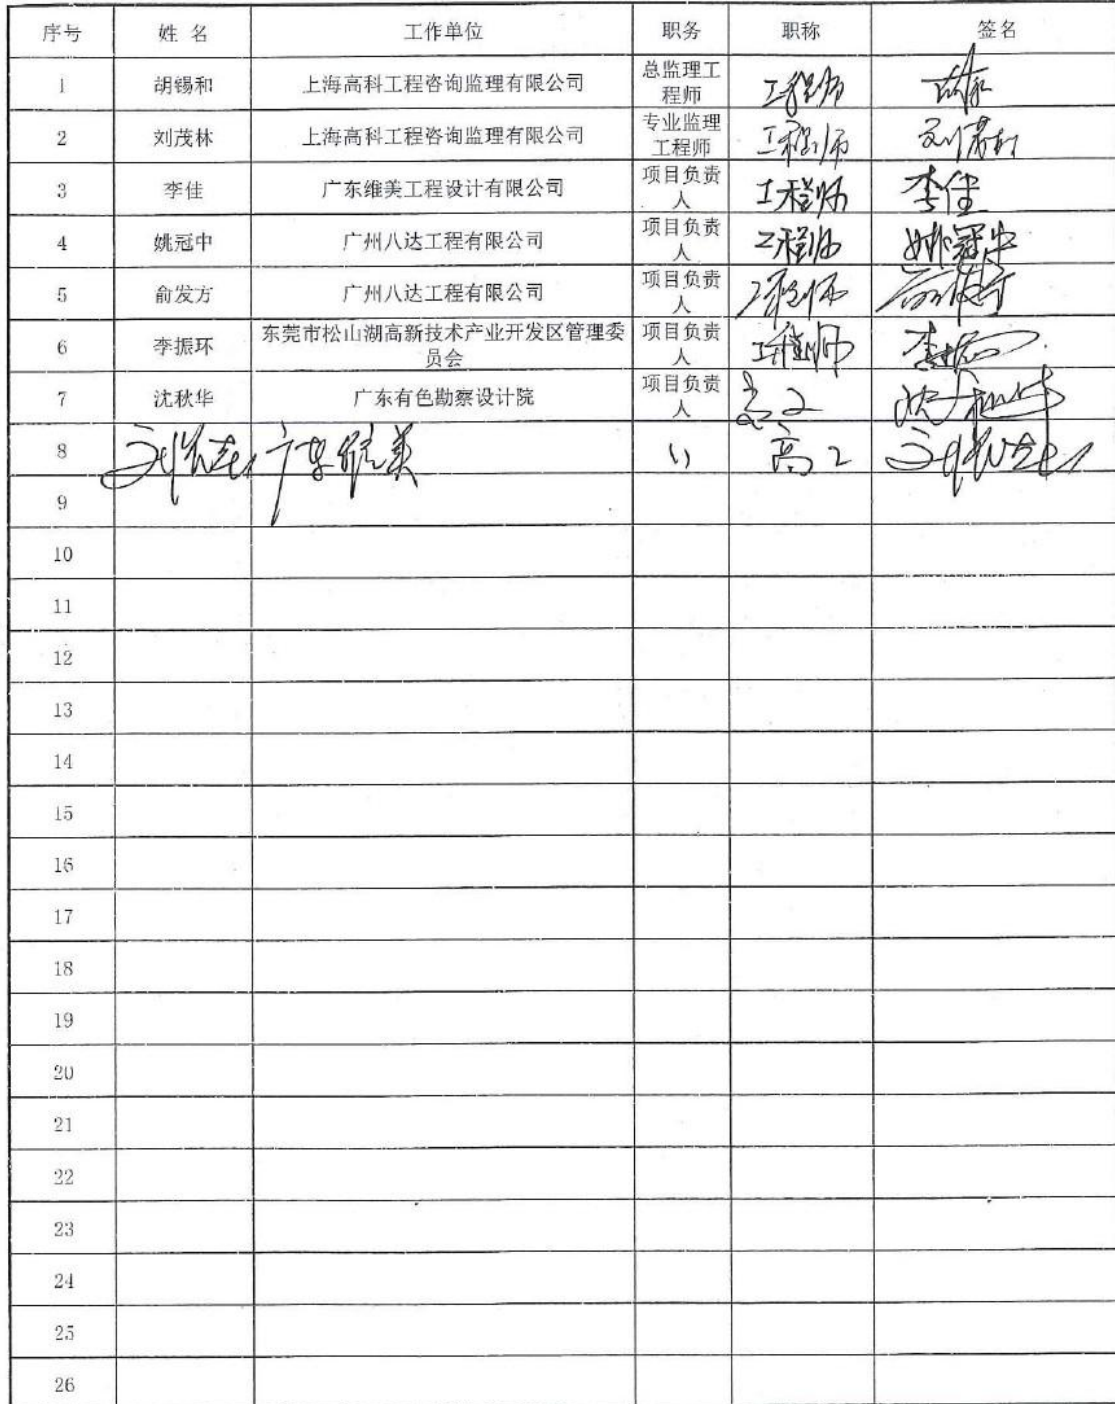 序号 姓 名 工作单位 职务 职称 签名
1 胡锡和 上海高科工程咨询监理有限公司 总监理工程师 工程师
2 刘茂林 上海高科工程咨询监理有限公司 专业监理工程师 工程师 刘茂林
3 李佳 广东维美工程设计有限公司 项目负责人 工程师 李佳
4 姚冠中 广州八达工程有限公司 项目负责人 工程师 姚冠中
5 俞发方 广州八达工程有限公司 项目负责人 工程师
6 李振环 东莞市松山湖高新技术产业开发区管理委员会 项目负责人 工程师 李振环
7 沈秋华 广东有色勘察设计院 项目负责人 高工 沈秋华
8 广东维美 高工
9
10
11
12
13
14
15
16
17
18
19
20
21
22
23
24
25
26